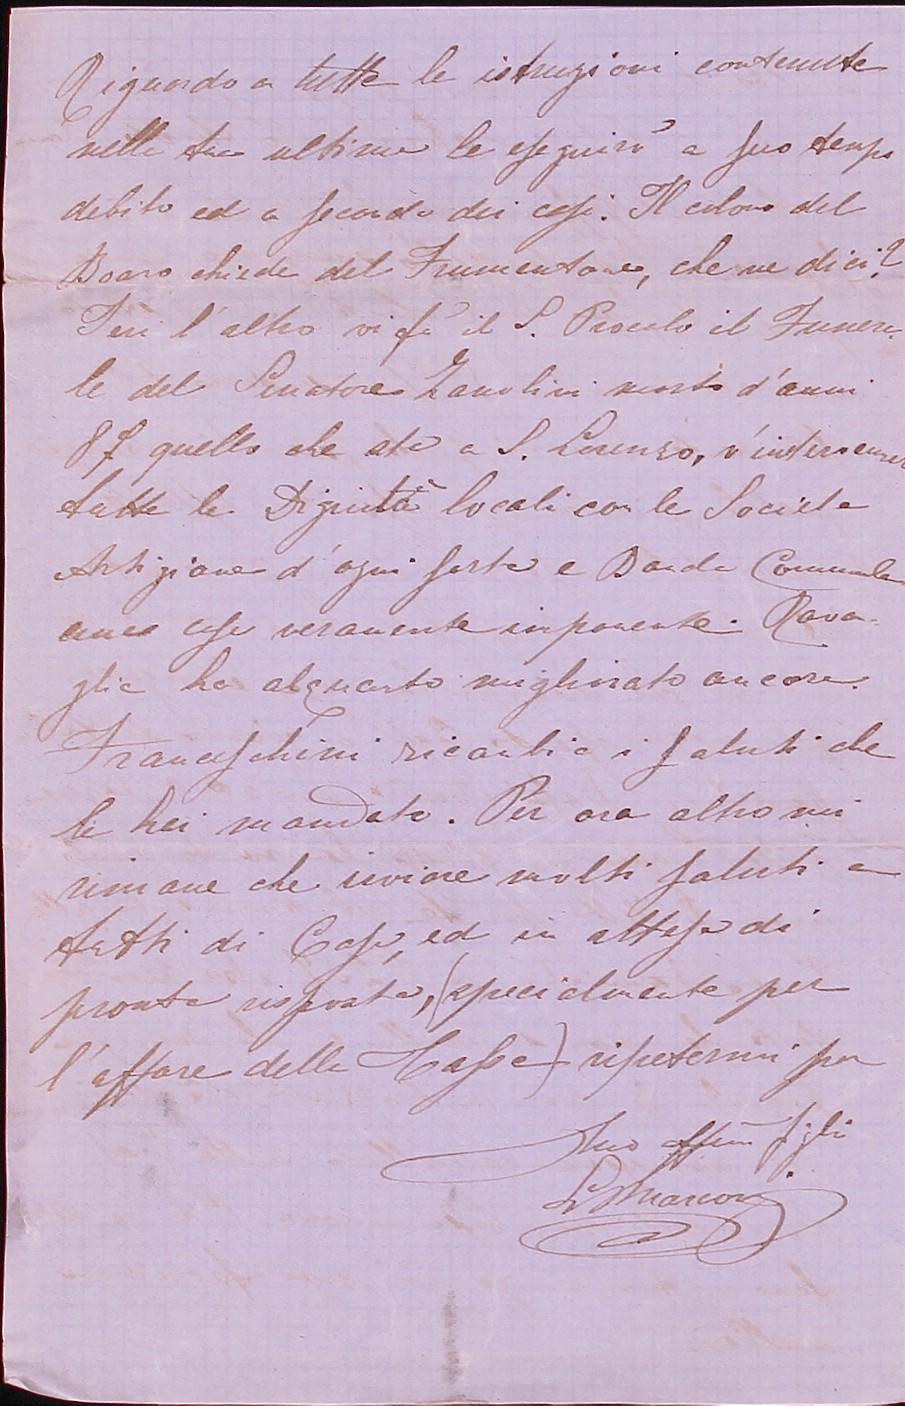 Riguardo a tutte le istruzioni contenute
nella tua ultima le eseguirò a suo tempo
debito ed a seconda dei casi. Il colono del
Boaro chiede del Frumentone, che ne dici?
Ieri l'altro vi fù il S. Procolo il Funera-
le del Senatore Zanolini morto d'anni
87 quello che sta a S. Lorenzo, v'intervenne
tutte le Dignità locali con le Società
Artigiane d'ogni sorta e Banda Comunale
una cosa veramente imponente. Rava-
glia ha alquanto migliorato ancora.
Franceschini ricambia i saluti che
le hai mandato. Per ora altro mi
rimane che inviare molti saluti a
tutti di Casa, ed in attesa di
pronta risposta, (specialmente per
l'affare della Cassa) ripetermi per
tuo affmo figlio